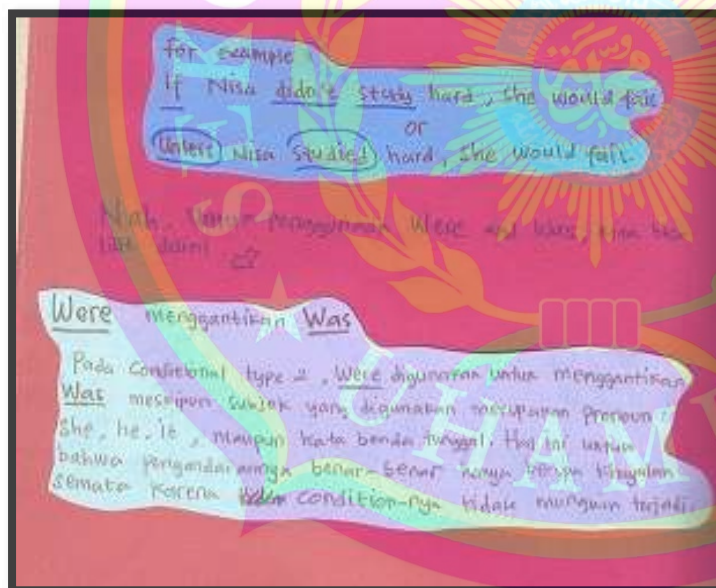 for example
If Nisa didn't study hard, she would fail
or
Unless Nisa studied hard, she would fail.
Nah, Untuk penggunaan Were and Was, kita bisa
lihat disini
Were menggantikan Was
Pada Conditional type 2, Were digunakan untuk menggantikan
Was meskipun subjek yang digunakan merupakan Pronoun :
She, he, it, maupun kata benda tunggal. Hal ini untuk
bahwa pengandaiannya benar-benar hanya berupa khayalan
semata karena condition-nya tidak mungkin terjadi.
UHAMKA